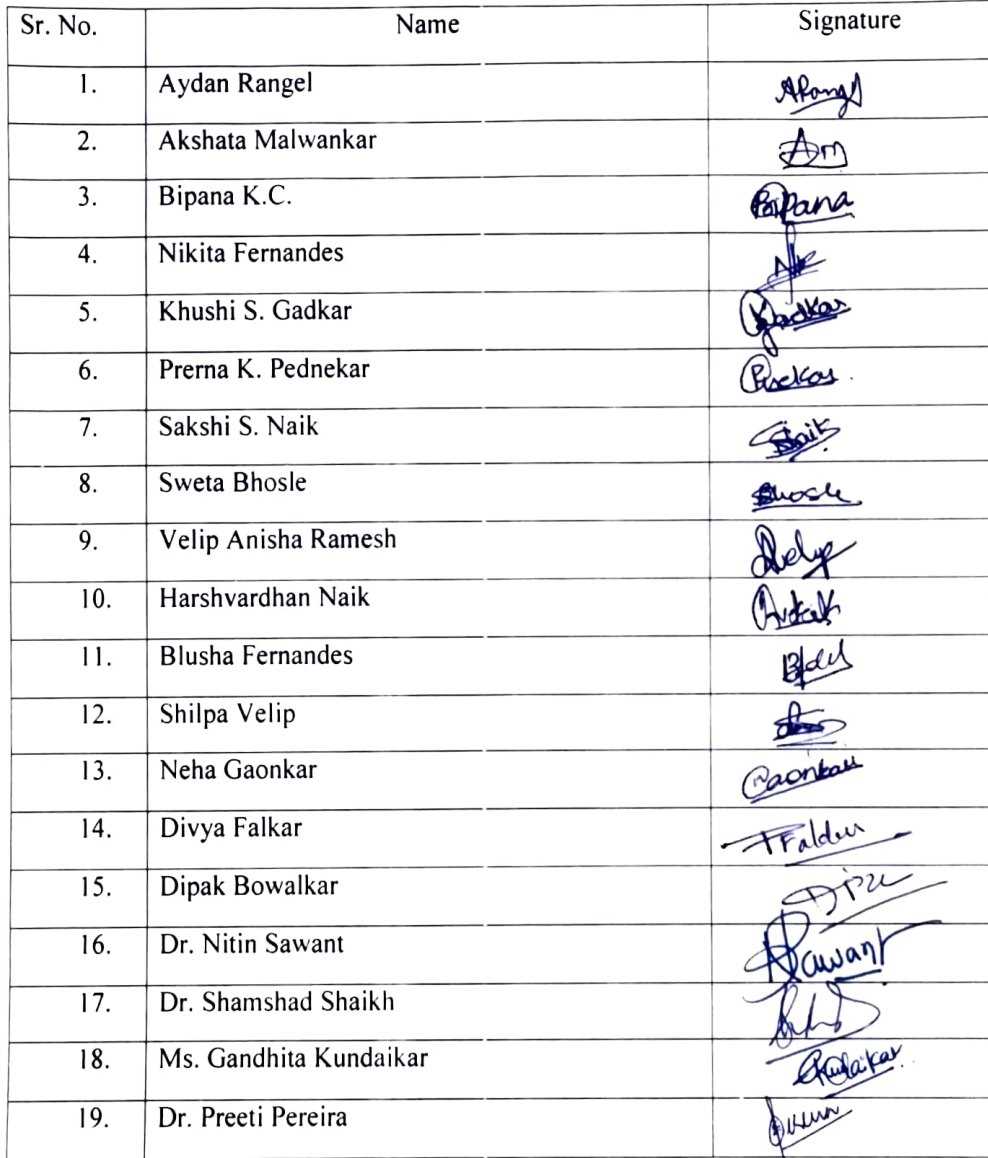 Sr. No. Name Signature
1. Aydan Rangel ARangel
2. Akshata Malwankar Am
3. Bipana K.C. Bipana
4. Nikita Fernandes
5. Khushi S. Gadkar Gadkar
6. Prerna K. Pednekar
7. Sakshi S. Naik SNaik
8. Sweta Bhosle Bhosle
9. Velip Anisha Ramesh AVelip
10. Harshvardhan Naik
11. Blusha Fernandes
12. Shilpa Velip
13. Neha Gaonkar Gaonkar
14. Divya Falkar
15. Dipak Bowalkar
16. Dr. Nitin Sawant NSawant
17. Dr. Shamshad Shaikh
18. Ms. Gandhita Kundaikar
19. Dr. Preeti Pereira